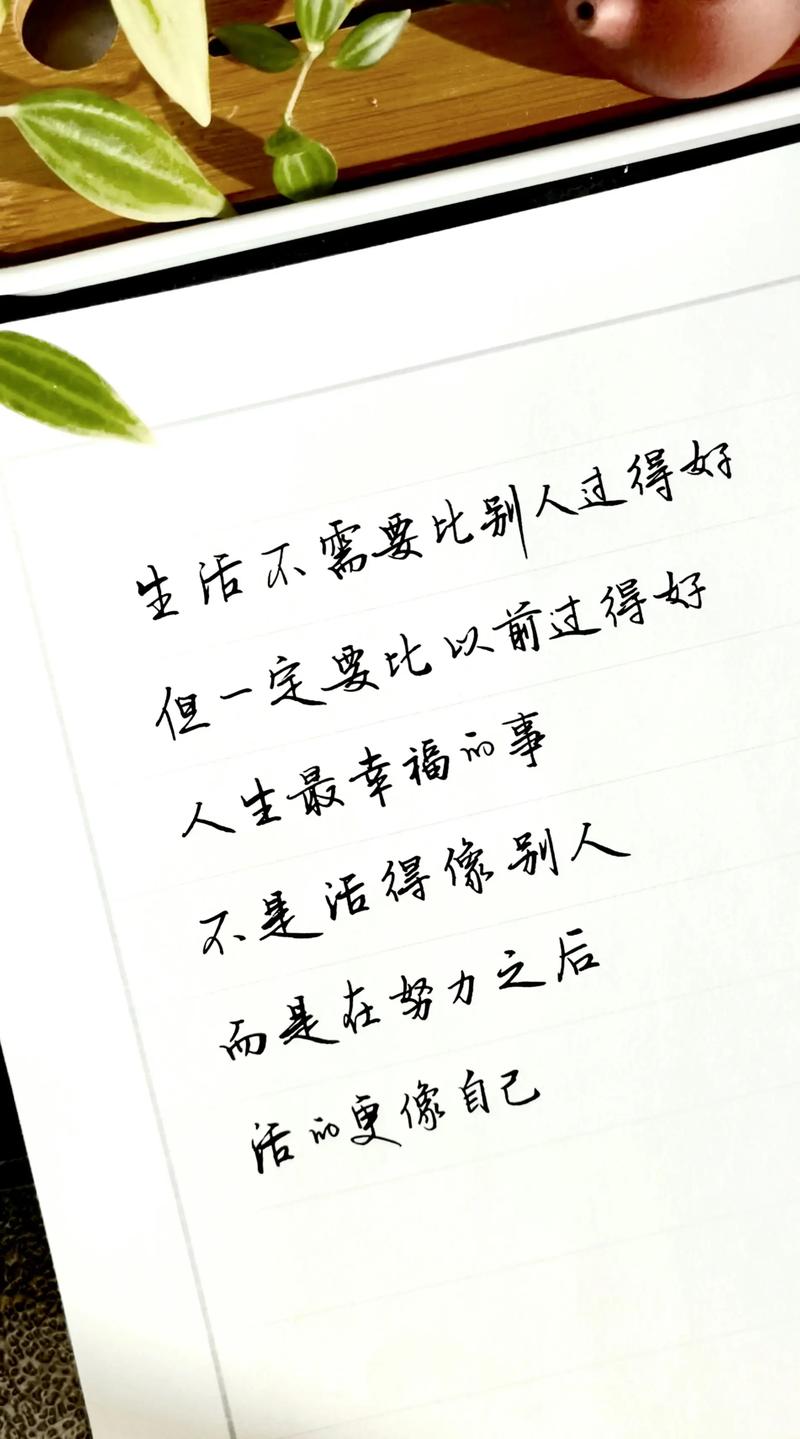 生活不需要比别人过得好
但一定要比以前过得好
人生最幸福的事
不是活得像别人
而是在努力之后
活的更像自己